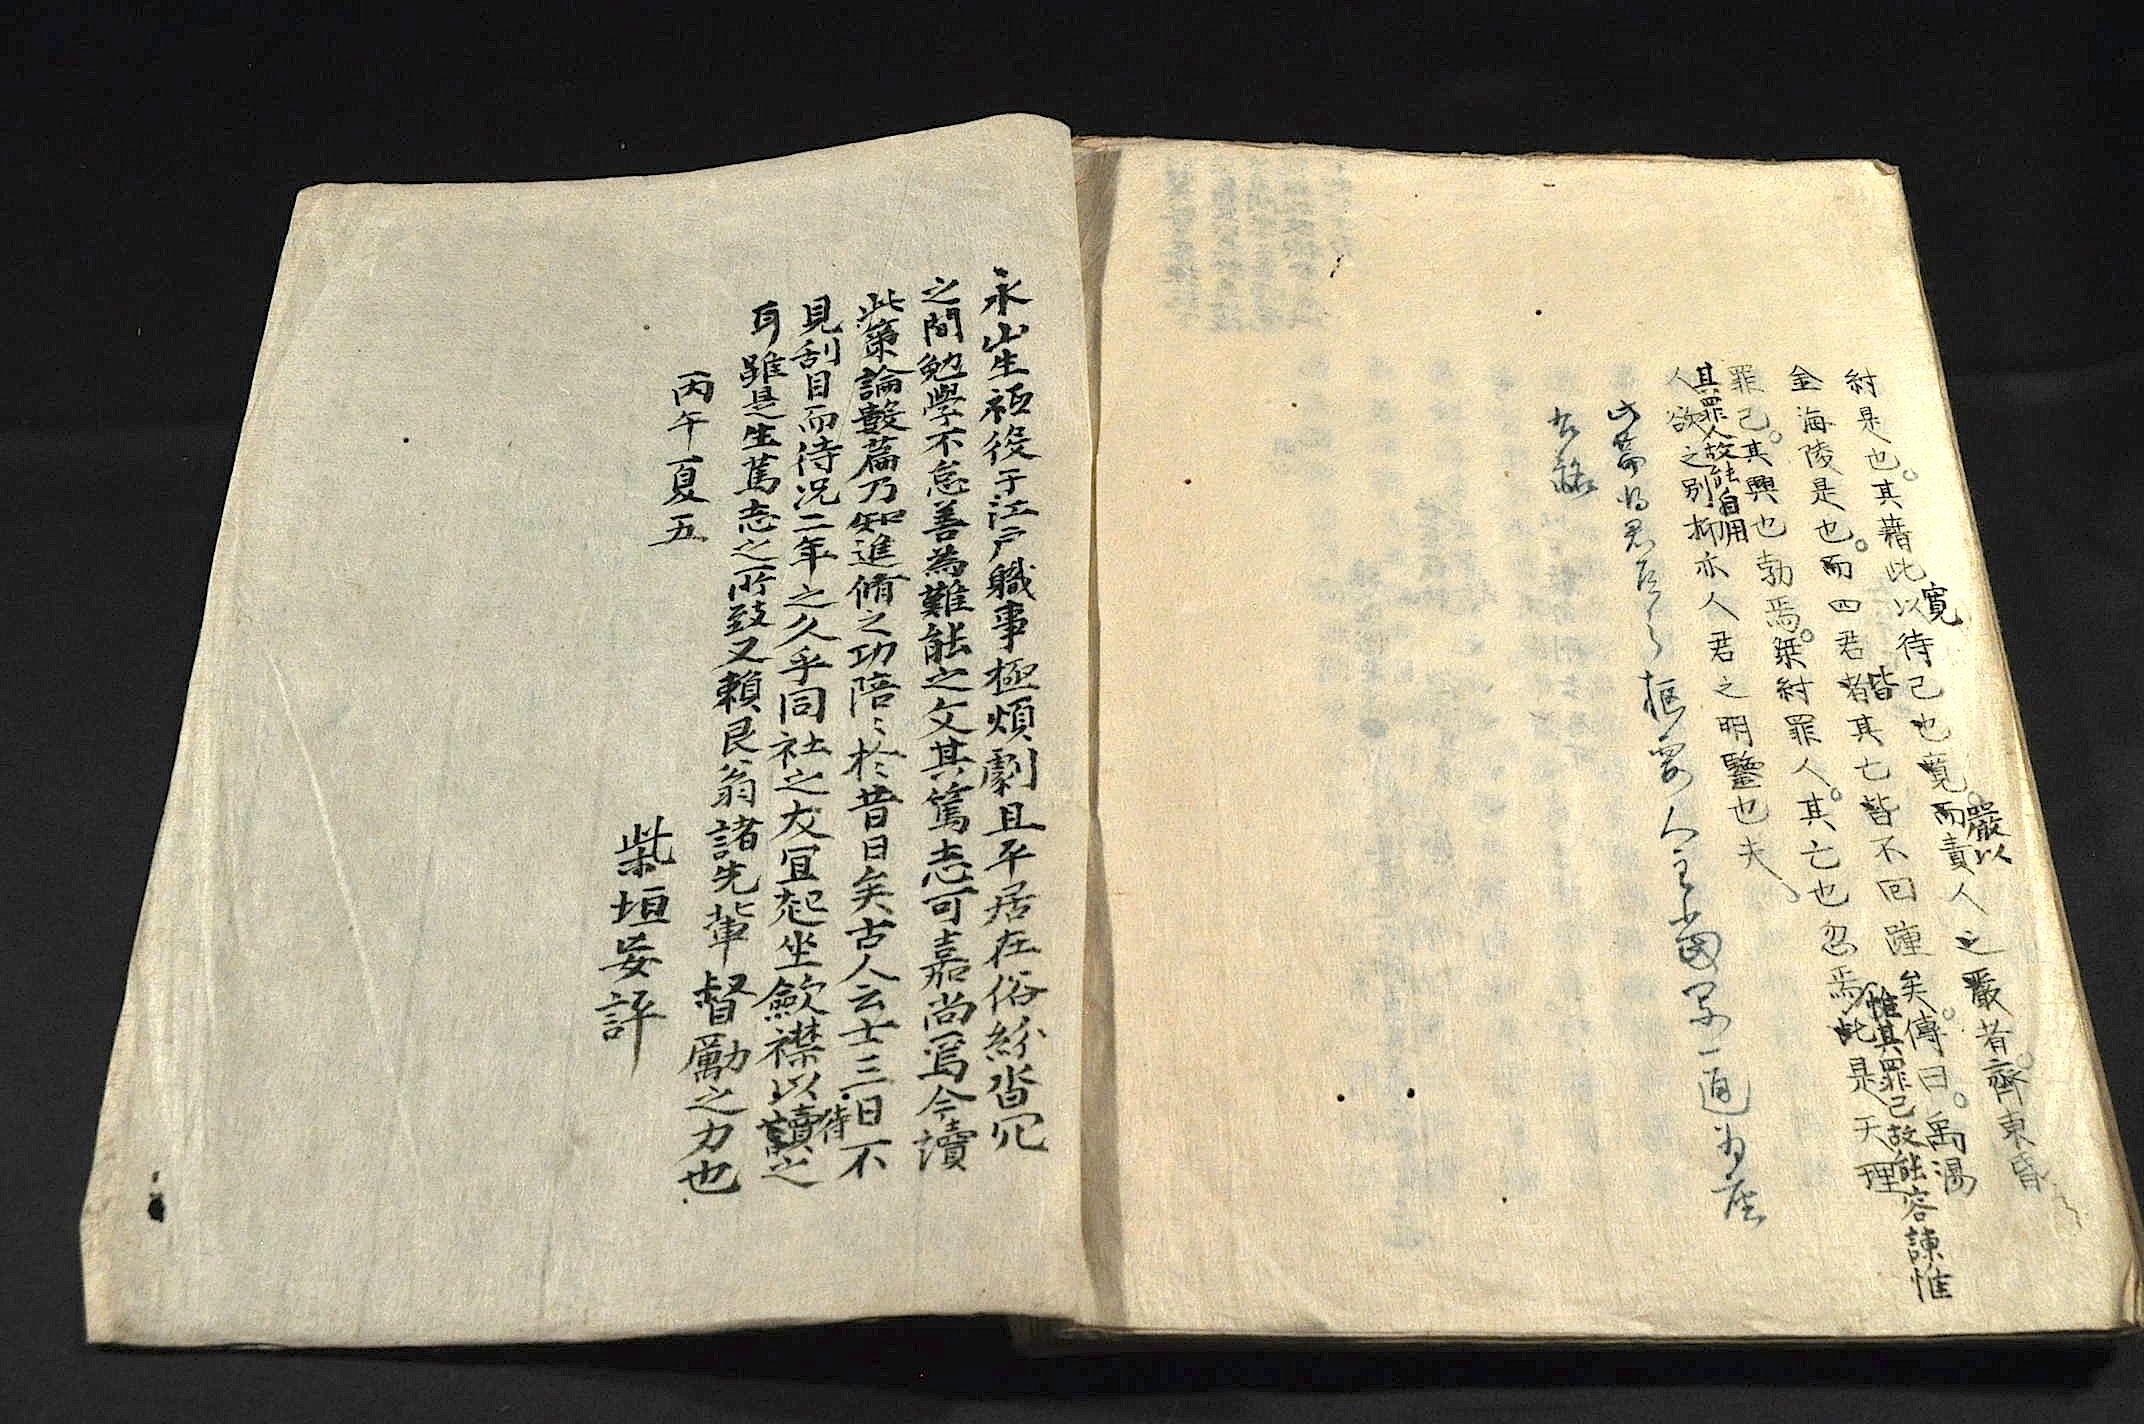 紂是也。其藉此以待己也寬。而責人之嚴者。齊東昏
寬
嚴以
金海陵是也。而四君者其亡皆不回踵矣。傳曰。禹湯
皆
罪己。其興也勃焉。桀紂罪人。其亡也忽焉。此是天理
惟其罪己故能容諫惟
其罪人故能自用
人欲之別抑亦人君之明鑒也夫
永山生祗役于江戶職事極煩劇且平居在俗紛沓冗
之間勉學不怠善為難能之文其篤志可嘉尚焉今讀
此策論數篇乃知進脩之功陪〻於昔日矣古人云士三日不
待
見刮目而待況二年之久乎同社之友宜起坐斂襟以讀之
耳雖是生篤志之所致又賴艮翁諸先輩督勵之力也
丙午夏五
柴垣妄評